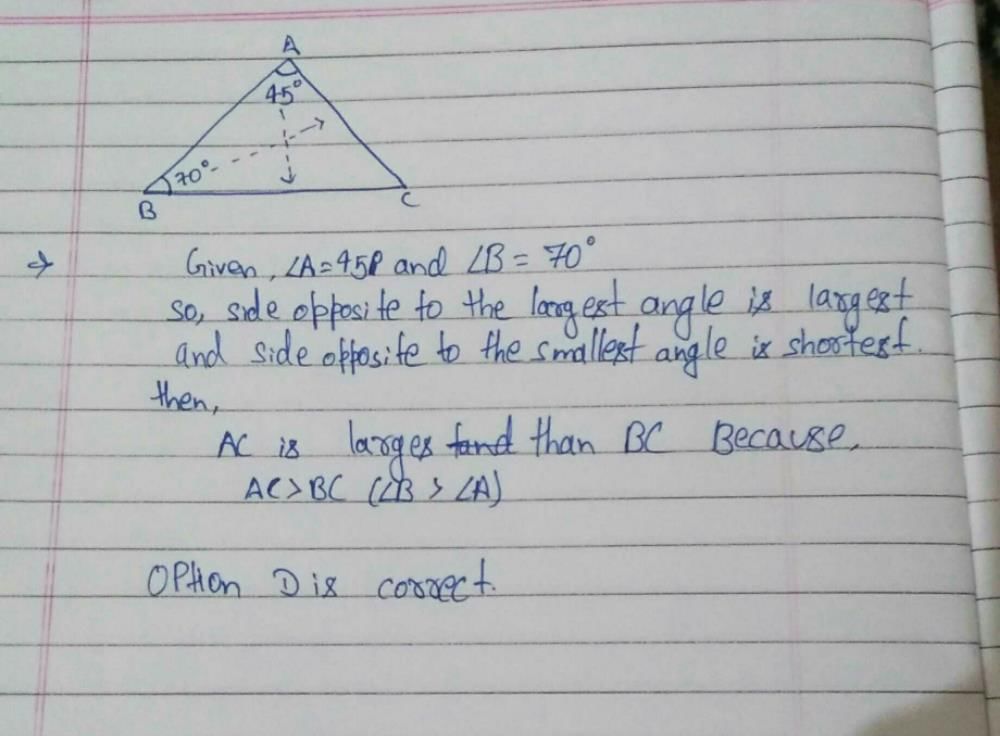 A
45°
70°
B
C
→ Given, ∠A = 45° and ∠B = 70°
so, side opposite to the largest angle is largest
and side opposite to the smallest angle is shortest.
then,
AC is larges than BC Because,
AC > BC (∠B > ∠A)
OPtion D is correct.